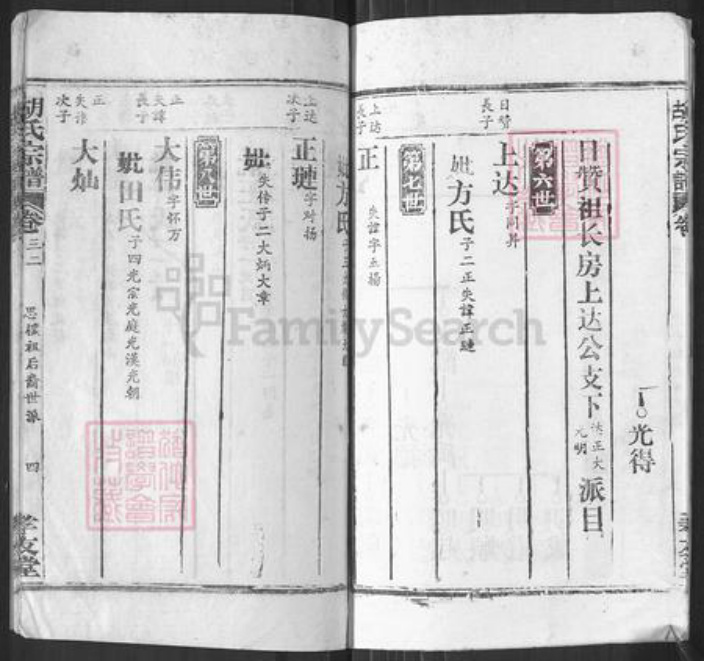 胡氏宗譜 卷
一〇光得
日贊祖长房上达公支下 达正大 光明 派目
第六世
日贊長子
上达 字
妣方氏 子二正失諱正璉
第七世
上达長子
正 失諱字玉揚
妣方氏 子三
上达次子
正璉 字对扬
妣 失传子二大炳大章
第八世
正失諱長子
大伟 字怀万
妣田氏 子四光宗光庭光漢光朝
正失諱次子
大灿
胡氏宗譜 卷三二 思樸祖后裔世派 四 孝友堂
FamilySearch